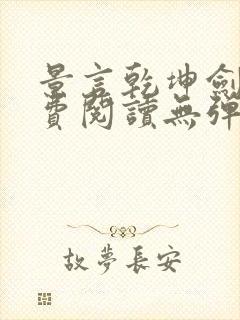 景言乾坤劍
費閱讀無彈
故夢長安